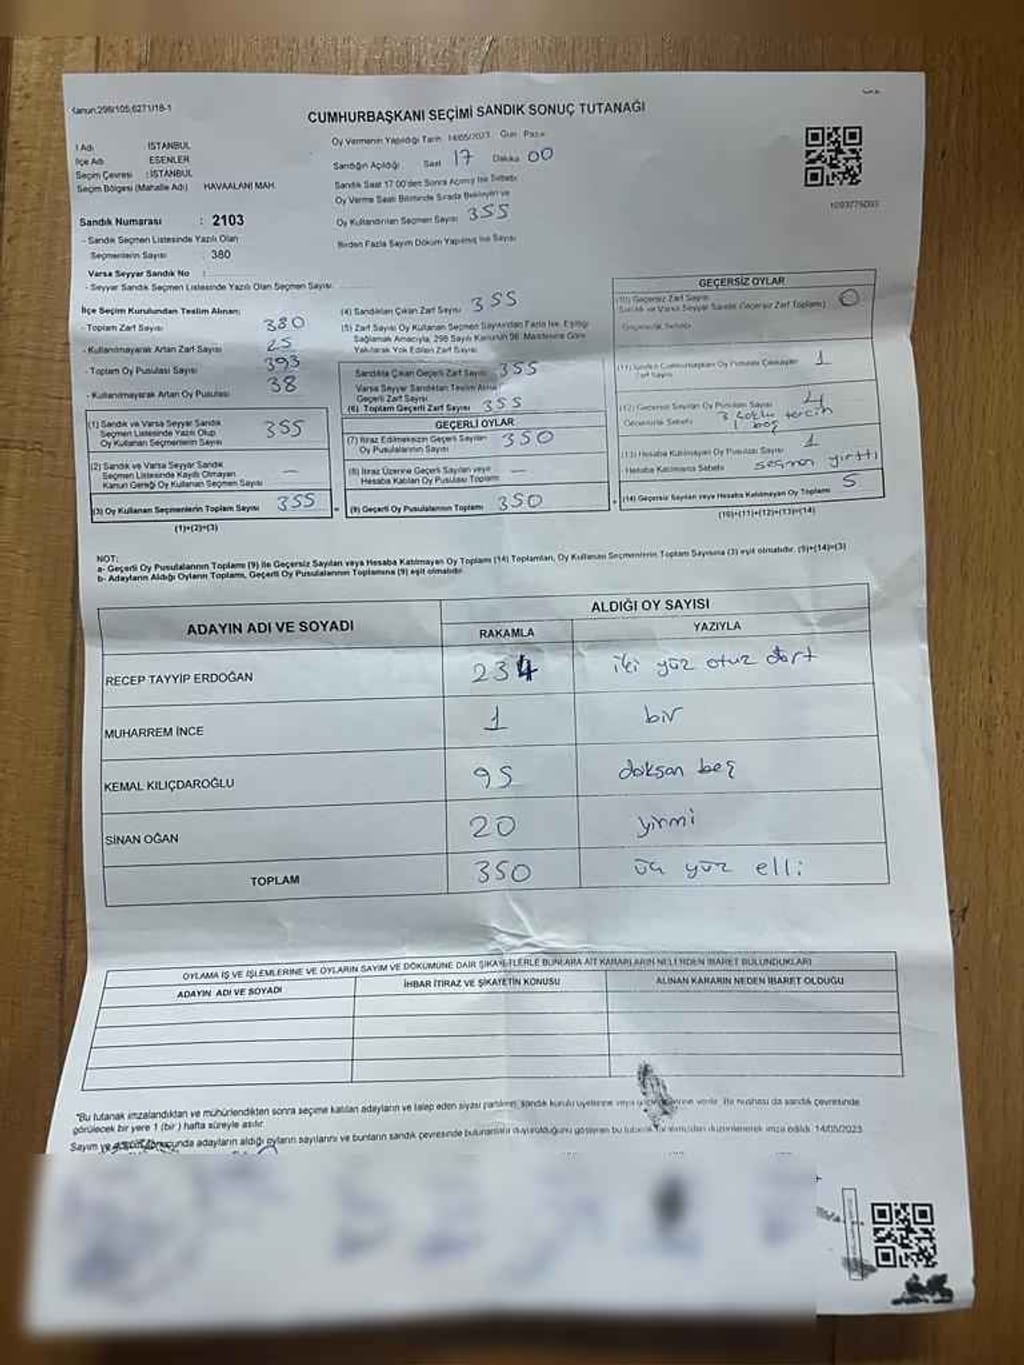 Kanun:298/105,6271/18-1
CUMHURBAŞKANI SEÇİMİ SANDIK SONUÇ TUTANAĞI
İl Adı İSTANBUL
İlçe Adı ESENLER
Seçim Çevresi : İSTANBUL
Seçim Bölgesi (Mahalle Adı) HAVAALANI MAH.
Sandık Numarası : 2103
- Sandık Seçmen Listesinde Yazılı Olan
Seçmenlerin Sayısı : 380
Varsa Seyyar Sandık No :
- Seyyar Sandık Seçmen Listesinde Yazılı Olan Seçmen Sayısı:
Oy Vermenin Yapıldığı Tarih 14/05/2023 Gün Pazar
Sandığın Açıldığı Saat 17 Dakika 00
Sandık Saat 17:00'den Sonra Açılmış İse Sebebi
Oy Verme Saati Bitiminde Sırada Bekleyen ve
Oy Kullandırılan Seçmen Sayısı 355
Birden Fazla Sayım Döküm Yapılmış İse Sayısı
İlçe Seçim Kurulundan Teslim Alınan:
- Toplam Zarf Sayısı 380
- Kullanılmayarak Artan Zarf Sayısı 25
- Toplam Oy Pusulası Sayısı 393
- Kullanılmayarak Artan Oy Pusulası 38
(1) Sandık ve Varsa Seyyar Sandık
Seçmen Listesinde Yazılı Olup
Oy Kullanan Seçmenlerin Sayısı 355
(2) Sandık ve Varsa Seyyar Sandık
Seçmen Listesinde Kaydı Olmayan
Kanun Gereği Oy Kullanan Seçmen Sayısı —
(3) Oy Kullanan Seçmenlerin Toplam Sayısı 355
(1)+(2)=(3)
(4) Sandıktan Çıkan Zarf Sayısı 355
(5) Zarf Sayısı Oy Kullanan Seçmen Sayısından Fazla İse, Eşitliği
Sağlamak Amacıyla, 298 Sayılı Kanunun 98. Maddesine Göre
Yakılarak Yok Edilen Zarf Sayısı
Sandıkta Çıkan Geçerli Zarf Sayısı 355
Varsa Seyyar Sandıktan Teslim Alınan
Geçerli Zarf Sayısı
(6) Toplam Geçerli Zarf Sayısı 355
GEÇERLİ OYLAR
(7) İtiraz Edilmeksizin Geçerli Sayılan
Oy Pusulalarının Sayısı 350
(8) İtiraz Üzerine Geçerli Sayılan veya
Hesaba Katılan Oy Pusulası Toplamı —
(9) Geçerli Oy Pusulalarının Toplamı 350
GEÇERSİZ OYLAR
(10) Geçersiz Zarf Sayısı
Sandık ve Varsa Seyyar Sandık Geçersiz Zarf Toplamı) 0
Geçersizlik Sebebi
Zarf Sayısı 1
(12) Geçersiz Sayılan Oy Pusulası Sayısı 4
Geçersizlik Sebebi 3 çoklu tercih
1 boş
(13) Hesaba Katılmayan Oy Pusulası Sayısı 1
Hesaba Katılmama Sebebi seçmen yırttı
(14) Geçersiz Sayılan veya Hesaba Katılmayan Oy Toplamı 5
(10)+(11)+(12)+(13)=(14)
NOT:
a- Geçerli Oy Pusulalarının Toplamı (9) ile Geçersiz Sayılan veya Hesaba Katılmayan Oy Toplamı (14) Toplamları, Oy Kullanan Seçmenlerin Toplam Sayısına (3) eşit olmalıdır. (9)+(14)=(3)
b- Adayların Aldığı Oyların Toplamı, Geçerli Oy Pusulalarının Toplamına (9) eşit olmalıdır.
ADAYIN ADI VE SOYADI
ALDIĞI OY SAYISI
RAKAMLA YAZIYLA
RECEP TAYYİP ERDOĞAN 234 iki yüz otuz dört
MUHARREM İNCE 1 bir
KEMAL KILIÇDAROĞLU 95 doksan beş
SİNAN OĞAN 20 yirmi
TOPLAM 350 üç yüz elli
OYLAMA İŞ VE İŞLEMLERİNE VE OYLARIN SAYIM VE DÖKÜMÜNE DAİR ŞİKAYETLERLE BUNLARA AİT KARARLARIN NELERDEN İBARET BULUNDUKLARI
ADAYIN ADI VE SOYADI
İHBAR İTİRAZ VE ŞİKAYETİN KONUSU
ALINAN KARARIN NEDEN İBARET OLDUĞU
"Bu tutanak imzalandıktan ve mühürlendikten sonra seçime katılan adayların ve talep eden siyasi partilerin, sandık kurulu üyelerine veya verilir. Bir nüshası da sandık çevresinde
görülecek bir yere 1 (bir) hafta süreyle asılır.
Sayım ve adayların aldığı oyların sayılarını ve bunların sandık çevresinde bulunanlara duyurulduğunu gösteren bu tutanak düzenlenerek imza edildi. 14/05/2023